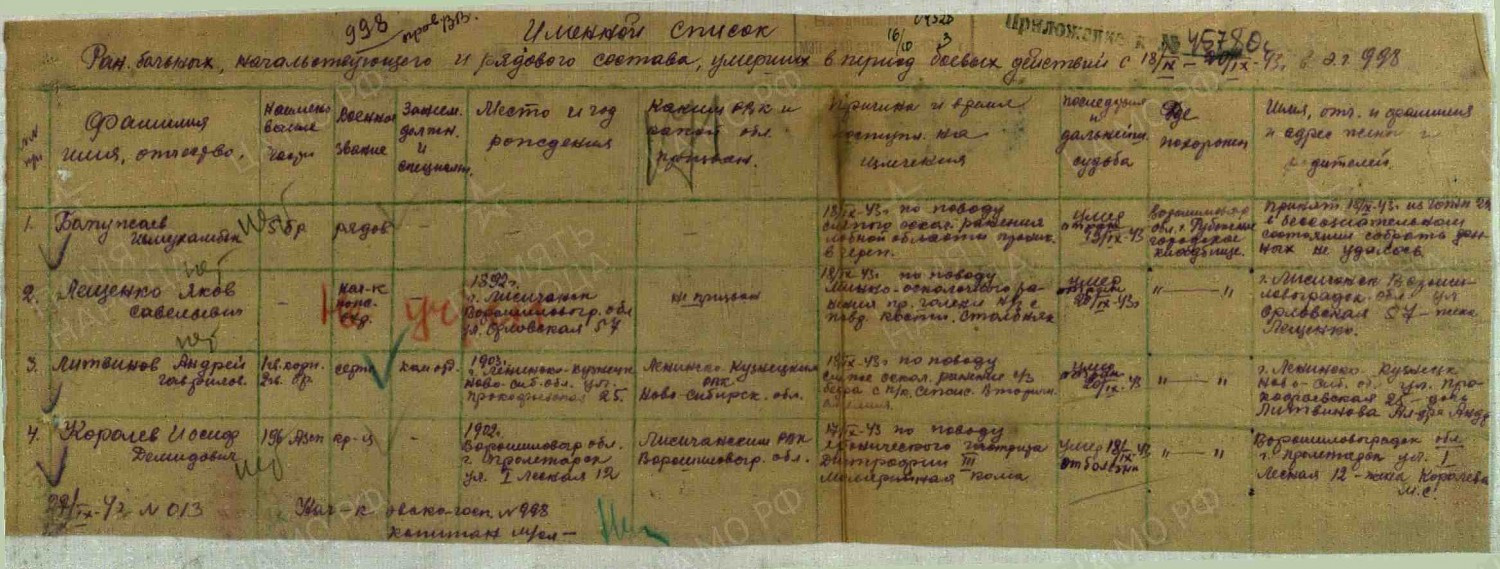 998
Именной список
Приложение к № 45780с
Ран. больных, начальствующего и рядового состава, умерших в период боевых действий с 18/IX - 20/IX-43г. в э.г 998
№№ пр.
Фамилия имя, отчество,
Наименование части
Военное звание
Занием. должн. и специальн.
Место и год рождения
Каким РВК и какой обл. призван.
Причина и время поступл. на излечение
последующая и дальнейш. судьба
Где похоронен
Имя, отч. и фамилия и адрес жены и родителей.
1.
5 бр
рядов
-
-
-
18/IX-43г. по поводу
слепого оскол. ранения
лобной области проник.
в череп.
Ворошиловгр
обл. г. Рубежное
городское
кладбище.
Принят 18/IX-43г. из
в бессознательном
состоянии собрать дан-
ных не удалось
2.
Лещенко Яков
Савельевич
-
нач-к
1892г.
г. Лисичанск
Ворошиловгр. обл
ул. Орловская 57
не призван
18/IX-43г. по поводу
минно-осколочного ра-
нения пр. голени н/з с
повр. кости. Столбняк
умер
20/IX-43г
"—"
г. Лисичанск Вороши-
ловградск. обл. ул
Орловская 57 - жена
Лещенко.
не уч.
3.
Литвинов Андрей
Гаврилов.
1 гв. корп.
2 гв. бр.
серж
ком отд.
1903г.
г. Ленинско-Кузнецк
Ново-сиб. обл. ул.
Прокофьевская 25.
Ленинско-Кузнецким
РВК
Ново-Сибирск. обл.
18/IX-43г по поводу
слепое оскол. ранение
бедра с п/к. Сепсис.
умер
20/IX-43
"—"
г. Ленинско-Кузнецк
Ново-сиб. обл. ул. Про-
25 - дочь
Литвинова
4.
Королев Иосиф
Демидович
196 Азсп
кр-ц
-
1902г.
Ворошиловгр обл.
г. Пролетарск
ул. I Лесная 12
Лисичанским РВК
Ворошиловгр. обл.
17/IX-43 по поводу
хронического гастрита
Дистрофии III
Малярийная кома
умер 18/IX-43
от болезни
"—"
Ворошиловградск обл
г. Пролетарск ул. I
Лесная 12 - жена Королева
М.С.
нет
нет
нет
нет
29/IX-43 № 013
Нач-к эвако-госп. № 998
капитан м/сл -
ПАМЯТЬ НАРОДА
ЦАМО РФ